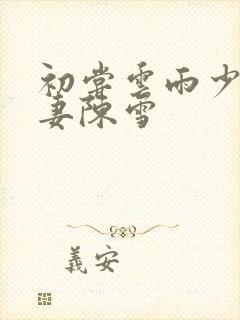 初尝雲雨少
妻陳雪
義安